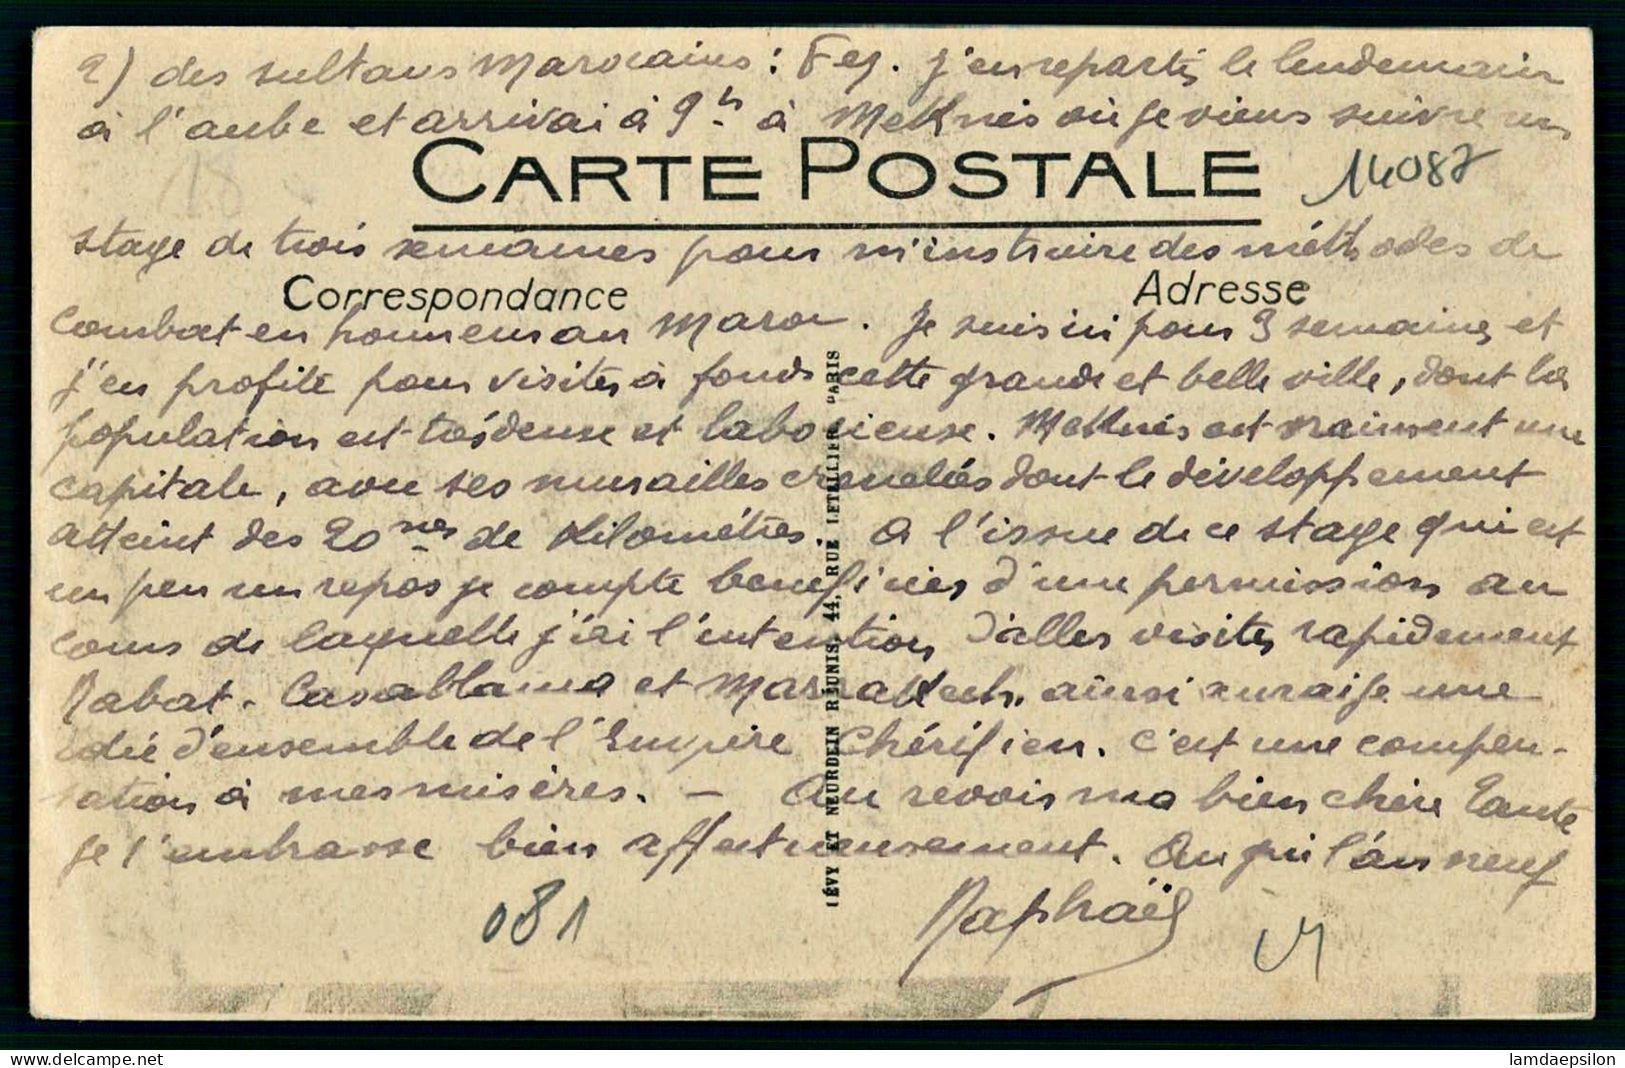 2) des sultans marocains : Fez. j'en repartis le lendemain
à l'aube et arrivai à 9 hs à Meknès où je viens suivre un
CARTE POSTALE
14087
stage de trois semaines pour m'instruire des méthodes de
Correspondance
Adresse
combat en honneur au Maroc. Je suis ici pour 3 semaines et
j'en profite pour visiter à fonds cette grande et belle ville, dont la
population est très dense et laborieuse. Meknès est vraiment une
capitale, avec ses murailles crenelées dont le développement
atteint des 20nes de kilomètres. A l'issue de ce stage qui est
un peu un repos je compte beneficier d'une permission au
cours de laquelle j'ai l'intention d'aller visiter rapidement
Rabat. Casablanca et Marrakech. ainsi aurais je une
idée d'ensemble de l'Empire Chérifien. C'est une compen-
sation à mes misères. — Au revoir ma bien chère Tante
je t'embrasse bien affectueusement. Au gui l'an neuf
Raphaël
081
LÉVY ET NEURDEIN RÉUNIS, 44, RUE LETELLIER, PARIS
lamdaepsilon
delcampe.net